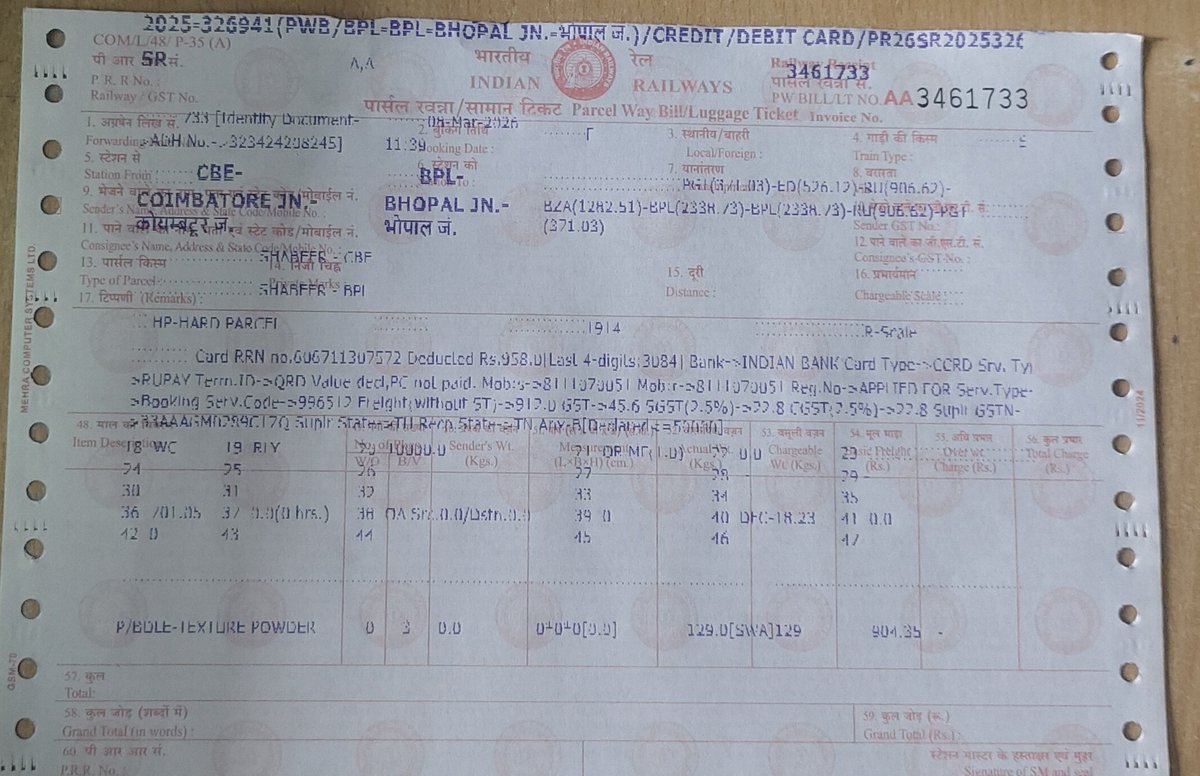 2025-326941(PWB/BPL=BPL=BHOPAL JN.=भोपाल जं.)/CREDIT/DEBIT CARD/PR26SR2025326
COM/L/48/ P-35 (A)
पी आर SR सं.
A,A
भारतीय रेल
INDIAN RAILWAYS
Railway Receipt
3461733
पार्सल रवन्ना सं.
P R R No.:
Railway / GST No.
PW BILL/LT NO. AA 3461733
पार्सल रवन्ना/सामान टिकट Parcel Way Bill/Luggage Ticket Invoice No.
1. अग्रषेन लिख सं. 733 [Identity Document-
08-Mar-2026
2. बुकिंग तिथि
3. स्थानीय/बाहरी
4. गाड़ी की किस्म
Forwarding
11:39 Booking Date :
Local/Foreign :
Train Type :
5. स्टेशन से
6. स्टेशन को
7. यानांतरण
Station From : CBE-
BPL-
COIMBATORE JN.-
कोयम्बटूर जं.
BHOPAL JN.-
भोपाल जं.
BZA(1282.51)-BPL(2338.73)-BPL(2338.73)-RU(906.62)-PGT
(371.03)
Sender's Name, Address & State Code/Mobile No. :
Sender GST No. :
12. पाने वाले का जी.एस.टी. सं.
Consignee's Name, Address & State Code/Mobile No. :
SHABEER - CBE
Consignee's GST No. :
13. पार्सल किस्म
14. निजी चिह्न
15. दूरी
16. प्रभार्यमान
Type of Parcel:
SHABEER - BPL
Distance :
Chargeable Scale :
17. टिप्पणी (Remarks) :
HP-HARD PARCEL 1914 R-Scale
Card RRN no.606711307572 Deducted Rs.958.0|Last 4-digits:3084| Bank->INDIAN BANK Card Type->CCRD Srv. Ty
>RUPAY Term.ID->QRD Value decl,PC not paid. Mob:s->8111070051 Mob:r->8111070051 Reg.No->APPLIED FOR Serv.Type-
>Booking Serv.Code->996512 Freight(without ST)->912.0 GST->45.6 SGST(2.5%)->22.8 CGST(2.5%)->22.8 Suplr GSTN-
Item Description
Sender's Wt. (Kgs.)
(L×B×H) (cm.)
53. वसूली वज़न
Chargeable Wt. (Kgs.)
54. मूल भाड़ा
Basic Freight (Rs.)
55. अधि प्रभार
Over wt. Charge (Rs.)
56. कुल प्रभार
Total Charge (Rs.)
18 WC 19 RLY 10000.0
24 25 26 27 28 - 29 -
30 31 32 33 34 35
36 701.05 37 0.0(0 hrs.) 38 39 0 40 DFC-18.23 41 0.0
42 0 43 44 45 46 47
P/BDLE-TEXTURE POWDER 0 3 0.0 0*0*0[0.0] 129.0[SWA]129 904.35 -
57. कुल
Total:
58. कुल जोड़ (शब्दों में)
Grand Total (in words) :
59. कुल जोड़ (रू.)
Grand Total (Rs.) :
60. पी आर आर सं.
P.R.R. No.:
स्टेशन मास्टर के हस्ताक्षर एवं मुहर
Signature of SM and seal
MEHRA COMPUTER SYSTEMS LTD.
GSM-70
11/2024